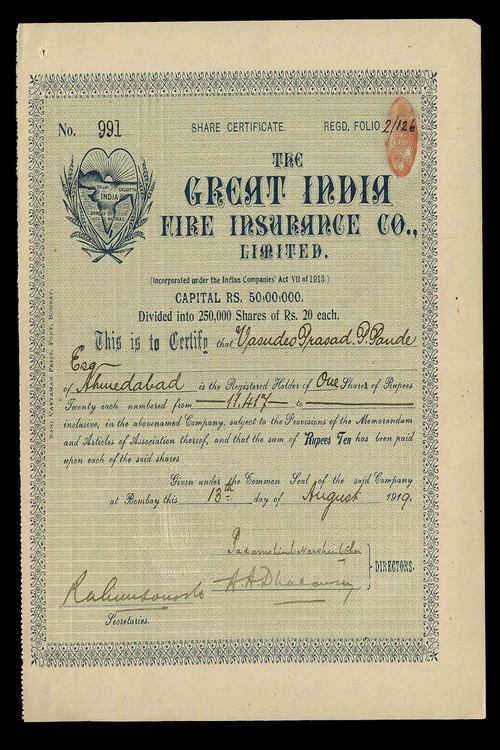 No. 991 SHARE CERTIFICATE. REGD. FOLIO 2/126
INDIA
THE
GREAT INDIA
FIRE INSURANCE CO.,
LIMITED.
(Incorporated under the Indian Companies' Act VII of 1913.)
CAPITAL RS. 50,00,000,
Divided into 250,000 Shares of Rs. 20 each.
This is to Certify that Vasudeo Prasad. P. Pande
Esq
of Ahmedabad is the Registered Holder of One Shares of Rupees
Twenty each numbered from 11,417 to
inclusive, in the abovenamed Company, subject to the Provisions of the Memorandum
and Articles of Association thereof, and that the sum of Rupees Ten has been paid
upon each of the said shares
Given under the Common Seal of the said Company
at Bombay this 13th day of August 1919.
DIRECTORS.
Secretaries.
SANJ VARTAMAN PRESS, FORT, BOMBAY.